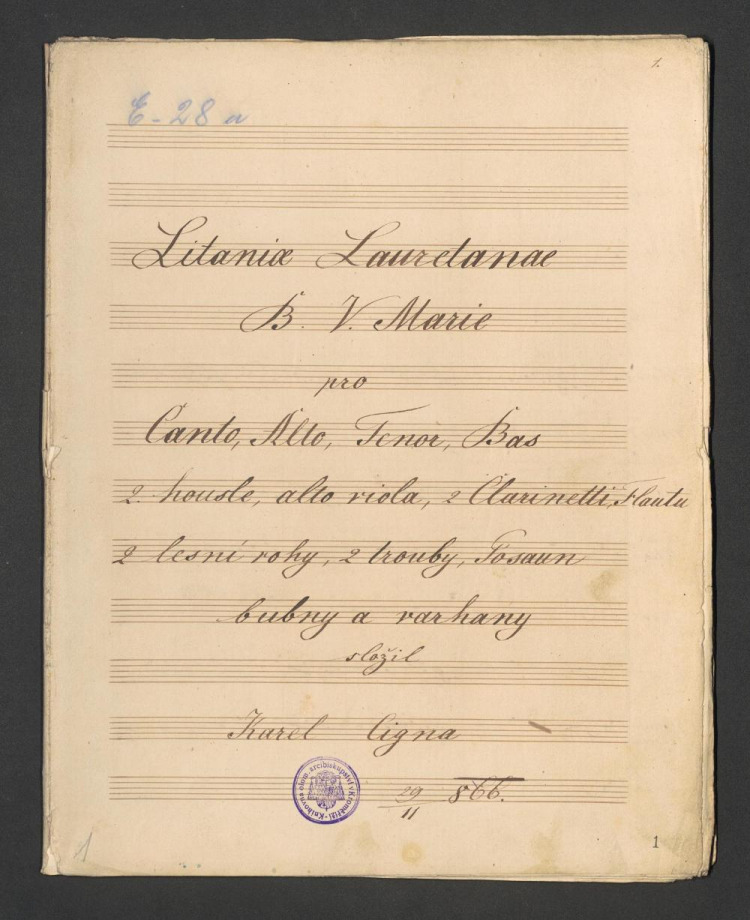 1.
E-28 a
Litaniæ Lauretanae
B. V. Marie
pro
Canto, Alto, Tenor, Bas
2 housle, alto viola, 2 Clarinetti, Flautu
2 lesní rohy, 2 trouby, Posaun
bubny a varhany
složil
Karel Cigna
Knihovna olom. arcibiskupství v Kroměříži
29/11 866.
1
1